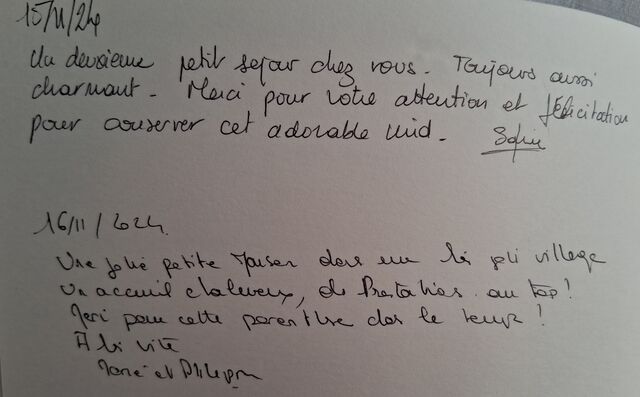 15/11/24
Un deuxième petit séjour chez vous. Toujours aussi
charmant. Merci pour votre attention et félicitation
pour conserver cet adorable nid. Sofie
16/11/2024.
Une jolie petite maison dans un très joli village
Un accueil chaleureux, des prestations au top!
Merci pour cette parenthèse dans le temps!
A très vite
Marie et Philippe